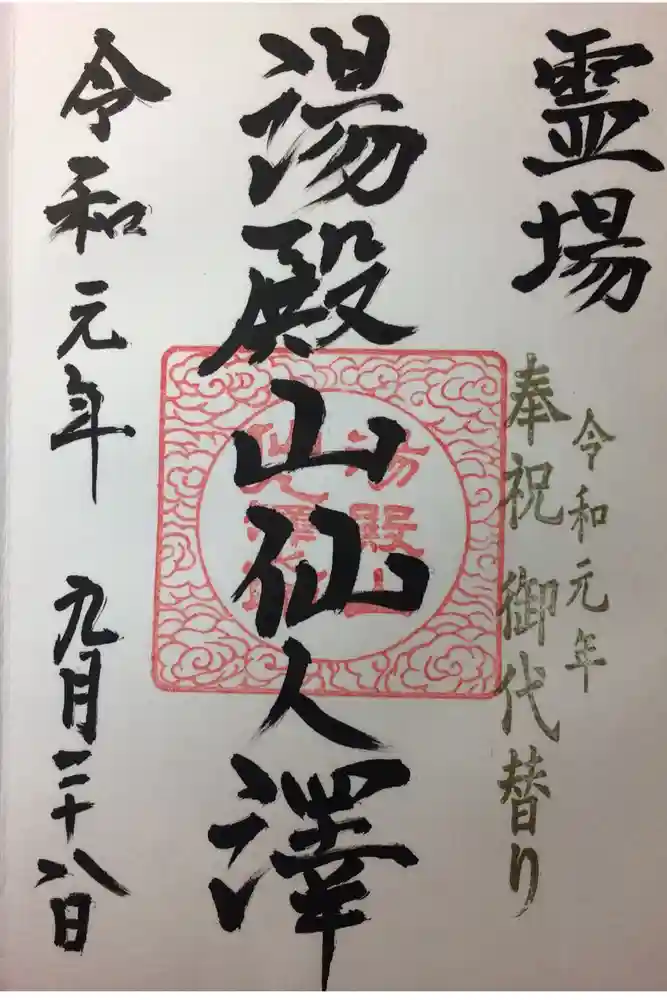 霊場
令和元年
奉祝 御代替り
湯殿山仙人澤
湯殿山
令和元年 九月二十八日